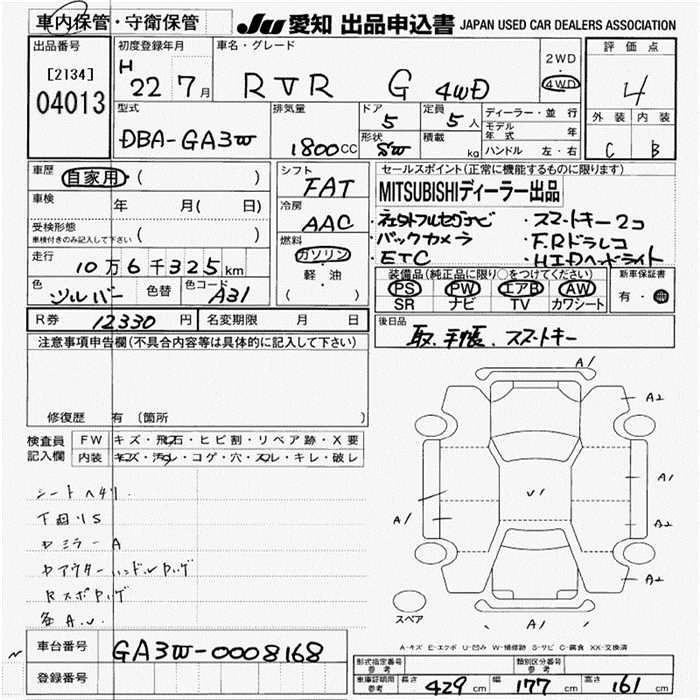 車内保管・守衛保管
JU 愛知 出品申込書 JAPAN USED CAR DEALERS ASSOCIATION
出品番号
[2134]
04013
初度登録年月
H 22 年 7 月
車名・グレード
RVR G 4WD
2WD
・
4WD
評価点
4
外装 内装
C B
型式
DBA-GA3W
排気量
1800 CC
ドア
5
形状
SW
定員
5 人
積載
kg
ディーラー・並行
モデル年式 年
ハンドル 左・右
車歴 自家用 ( )
車検 年 月( 日)
受検形態
車検付きのみ記入して下さい ( )
走行 10万6千325km
色 シルバー 色替 色コード A31
シフト
FAT
冷房
AAC
燃料
ガソリン
・
軽・油
( )
セールスポイント(正常に機能するものに限ります)
MITSUBISHIディーラー出品
・社外フルセグナビ ・スマートキー2コ
・バックカメラ ・F.Rドラレコ
・ETC ・HIDヘッドライト
装備品(純正品に限り○をつけてください)
PS PW エアB AW
SR ナビ TV カワシート
新車保証書
有・無
R券 12330 円 名変期限 月 日
後日品
取、手帳、スマートキー
注意事項申告欄(不具合内容等は具体的に記入して下さい)
修復歴 有 〔箇所 〕
検査員記入欄
FW キズ・飛石・ヒビ割・リペア跡・X要
内装 キズ・汚レ・コゲ・穴・スレ・キレ・破レ
シートヘタリ
下回りS
ミラーA
アウターハンドル
各A.U.
A1
A2
A2
U1
A1
A1
A2
A2
A1
スペア
A-キズ E-エクボ U-凹み W-補修跡 S-サビ C-腐食 XX-交換済
車台番号 GA3W-0008168
登録番号
形式指定番号 参考
類別区分番号 参考
車庫証明用 参考 長さ 429 cm 幅 177 cm 高さ 161 cm